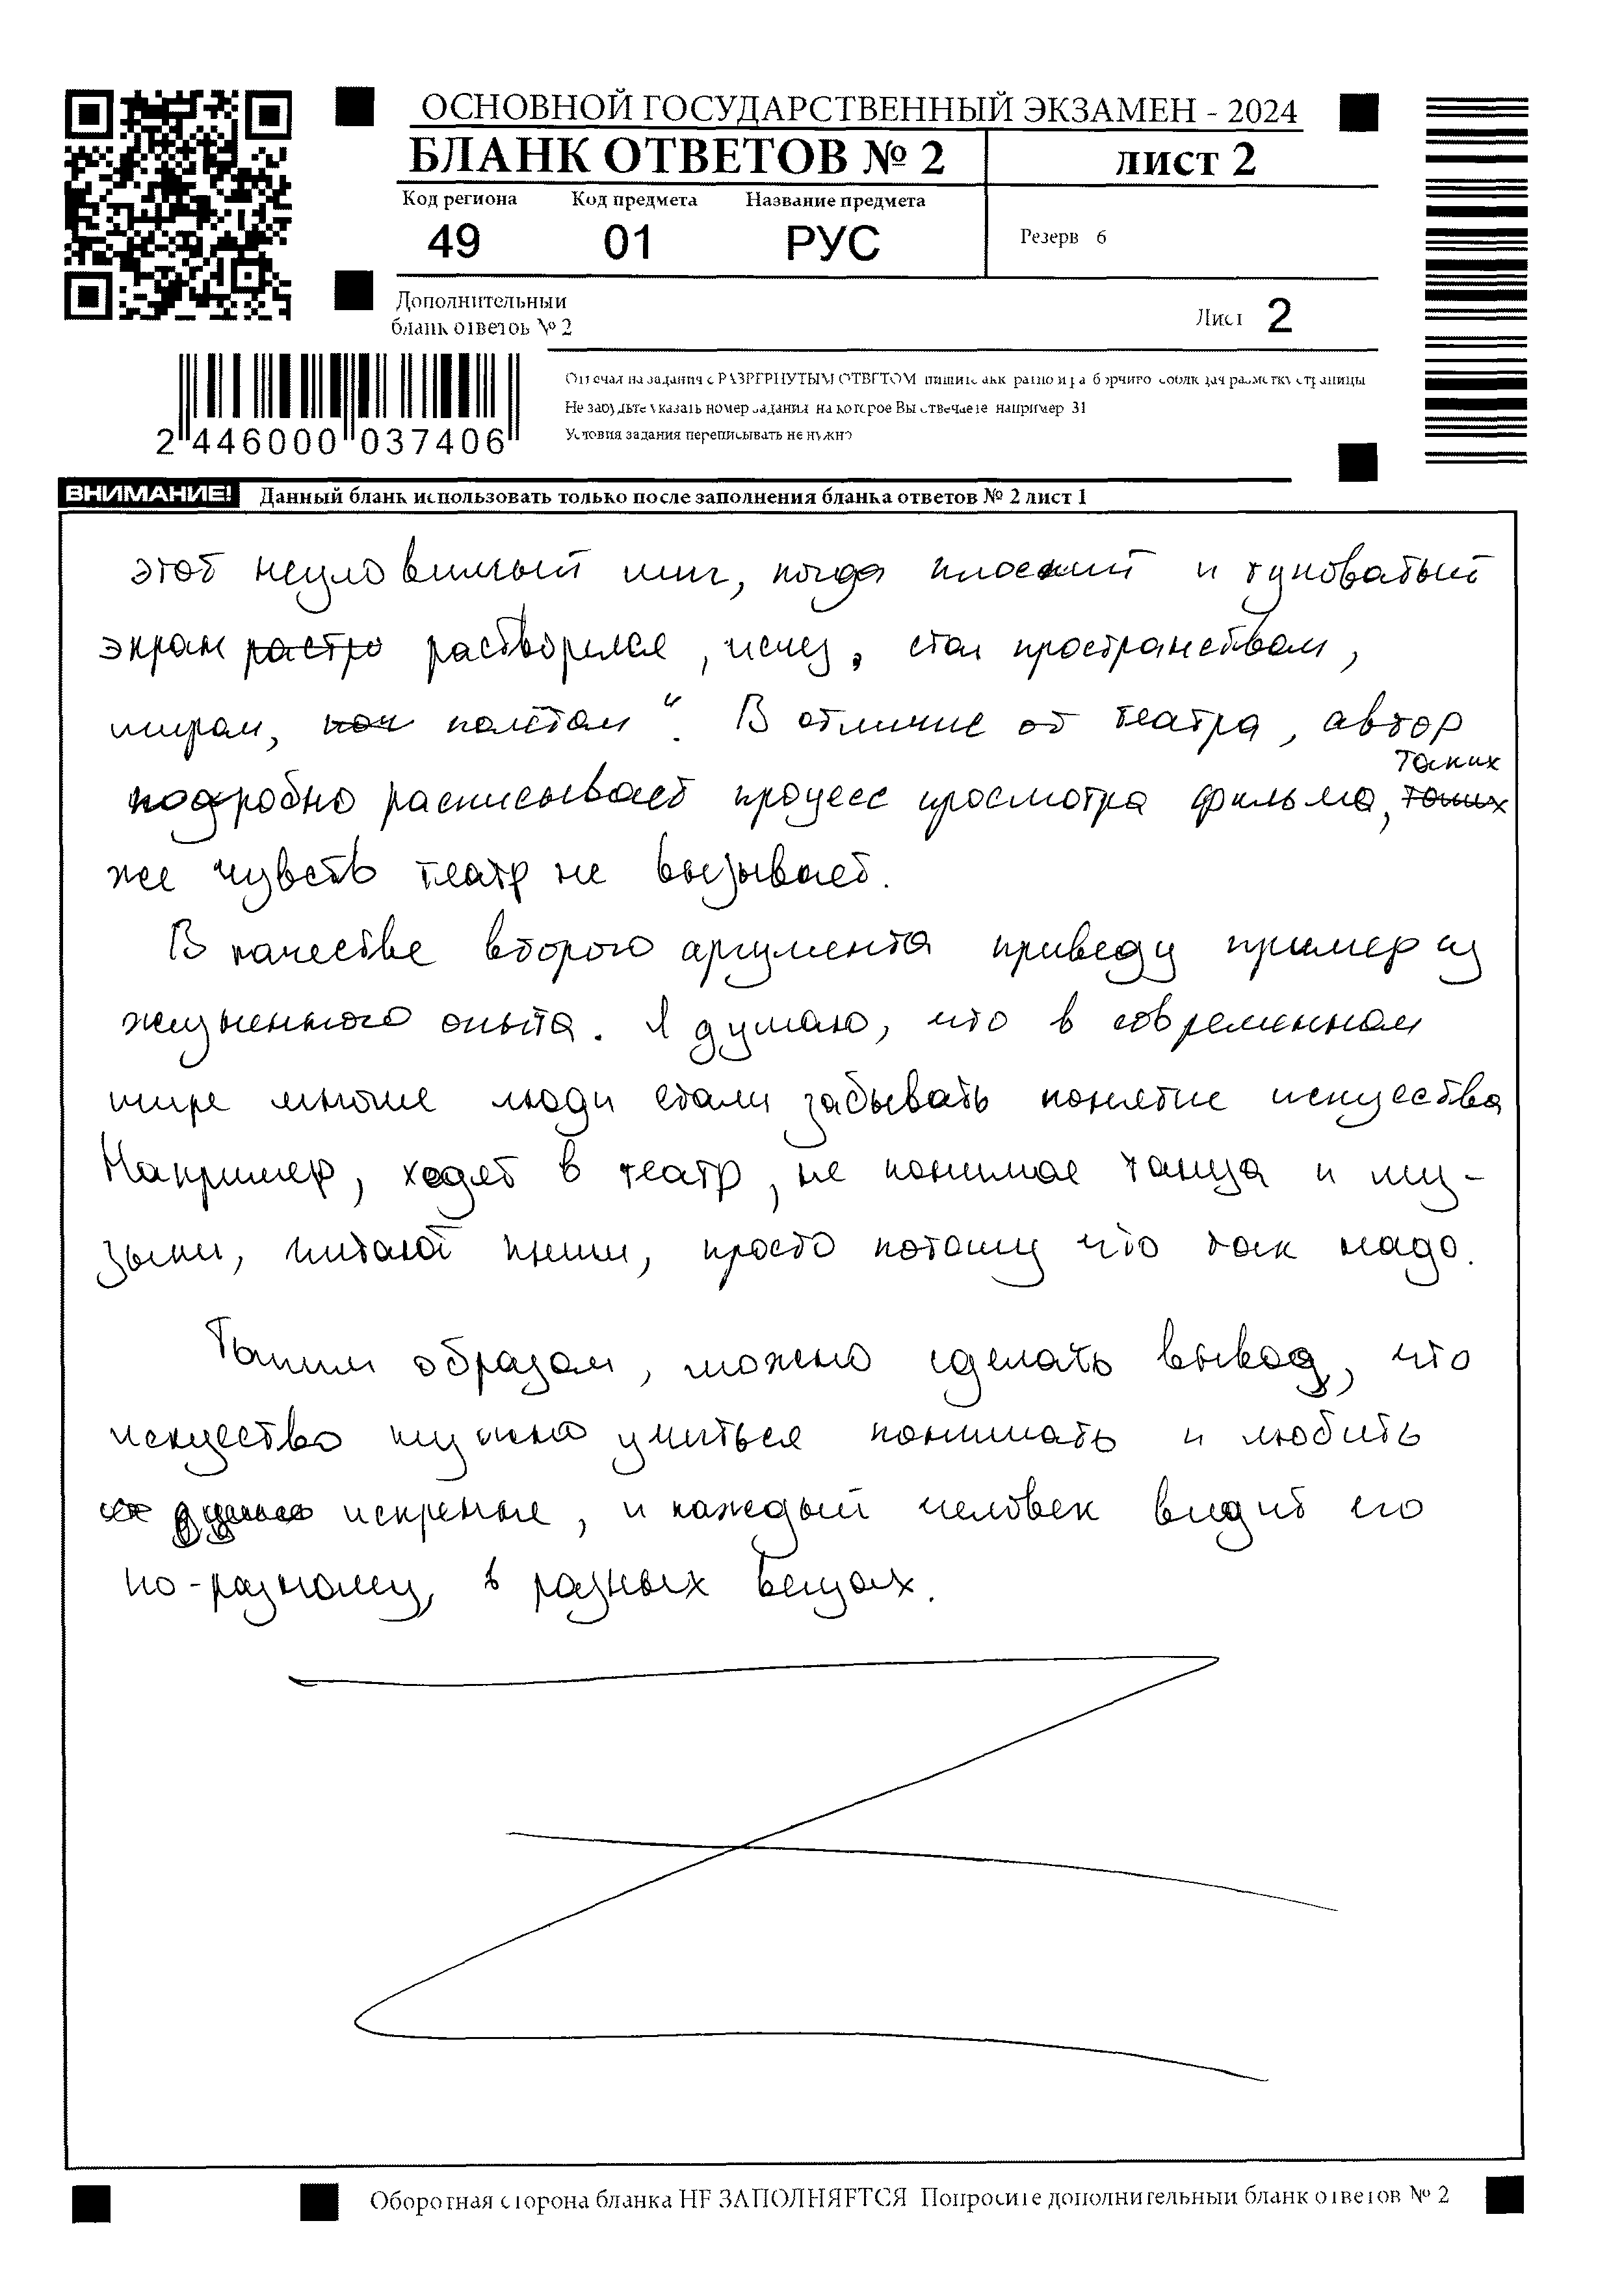 ОСНОВНОЙ ГОСУДАРСТВЕННЫЙ ЭКЗАМЕН - 2024
БЛАНК ОТВЕТОВ № 2
ЛИСТ 2
Код региона Код предмета Название предмета
49 01 РУС
Резерв 6
Дополнительный
бланк ответов № 2
Лист 2
2 446000 037406
Отвечая на задания с РАЗВЕРНУТЫМ ОТВЕТОМ пишите аккуратно и разборчиво соблюдая разметку страницы
Не забудьте указать номер задания на которое Вы отвечаете например 31
Условия задания переписывать не нужно
ВНИМАНИЕ! Данный бланк использовать только после заполнения бланка ответов № 2 лист 1
этот неуловимый миг, когда плоский и туповатый
экран растро растворился, исчез, стал пространством,
миром, полётом". В отличие от театра, автор
подробно расписывает процесс просмотра фильма, таких
же чувств театр не вызывает.
В качестве второго аргумента приведу пример из
жизненного опыта. Я думаю, что в современном
мире многие люди стали забывать понятие искусства
Например, ходят в театр, не понимая танца и му-
зыки, читают книги, просто потому что так надо.
Таким образом, можно сделать вывод, что
искуство нужно учиться понимать и любить
искренне, и каждый человек видит его
по-разному, в разных вещах.
Оборотная сторона бланка НЕ ЗАПОЛНЯЕТСЯ Попросите дополнительный бланк ответов № 2